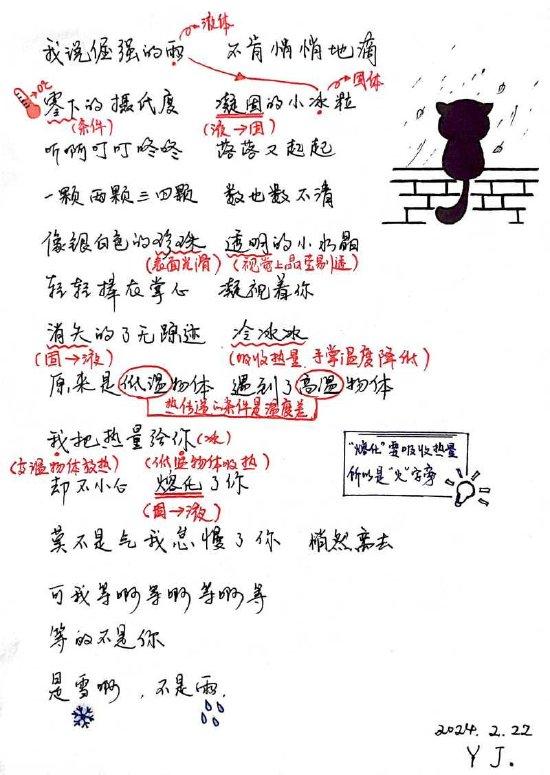 液体
我说倔强的雨 不肯悄悄地滴
固体
0℃
零下的摄氏度 凝固的小冰粒
(条件) (液→固)
听啊叮叮咚咚 落落又起起
一颗两颗三四颗 数也数不清
像银白色的珍珠 透明的小水晶
(表面光滑) (视觉上晶莹剔透)
轻轻捧在掌心 凝视着你
消失的了无踪迹 冷冰冰
(固→液) (吸收热量,手掌温度降低)
原来是低温物体 遇到了高温物体
热传递的条件是温度差
我把热量给你(冰)
(高温物体放热) (低温物体吸热)
"熔化"要吸收热量
所以是"火"字旁
却不小心 熔化了你
(固→液)
莫不是气我怠慢了你 悄然离去
可我等啊等啊等啊等
等的不是你
是雪啊,不是雨.
2024.2.22
YJ.